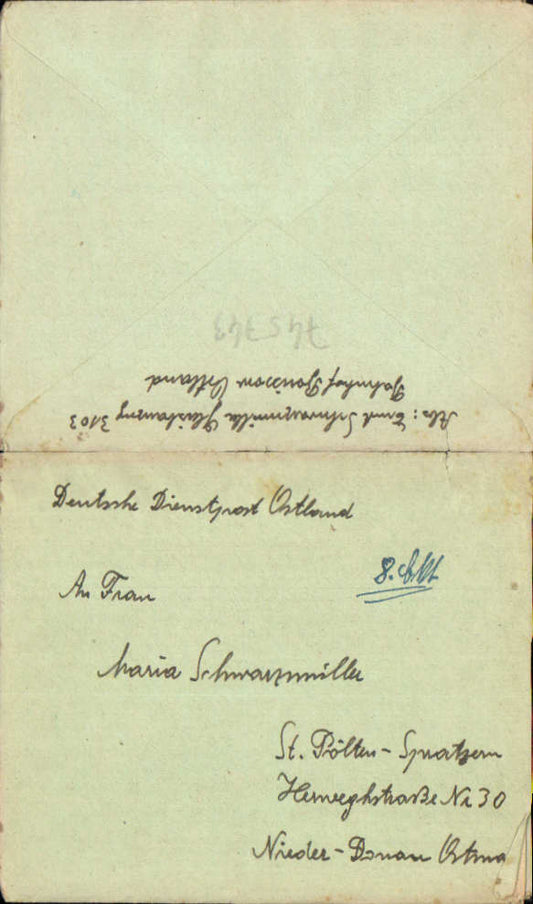 745343
Abs: Emil Schwarzmüller 3103
Bahnhof Ostland
Deutsche Dienstpost Ostland
8. Okt
An Frau
Maria Schwarzmüller
St. Pölten - Spratzern
Herweghstraße Nr 30
Nieder - Donau Ostma